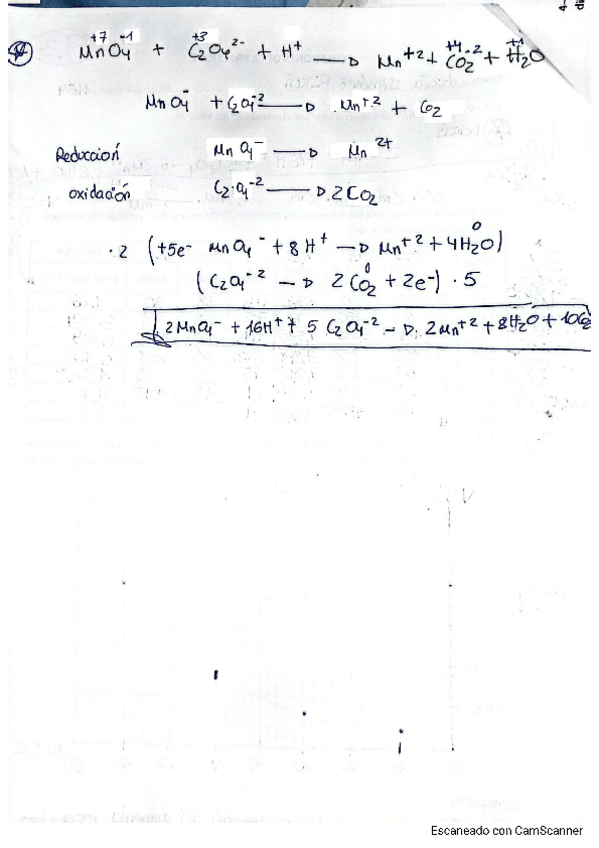 +7 -1 +3 +4 -2 +1
MnO4 + C2O4 2- + H+ → Mn+2 + CO2 + H2O
MnO4- + C2O4-2 → Mn+2 + CO2
Reducción MnO4- → Mn 2+
oxidación C2O4-2 → 2CO2
·2 (+5e- MnO4- + 8H+ → Mn+2 + 4H2O)
(C2O4-2 → 2CO2 + 2e-) · 5
2MnO4- + 16H+ + 5 C2O4-2 → 2Mn+2 + 8H2O + 10CO2
Escaneado con CamScanner